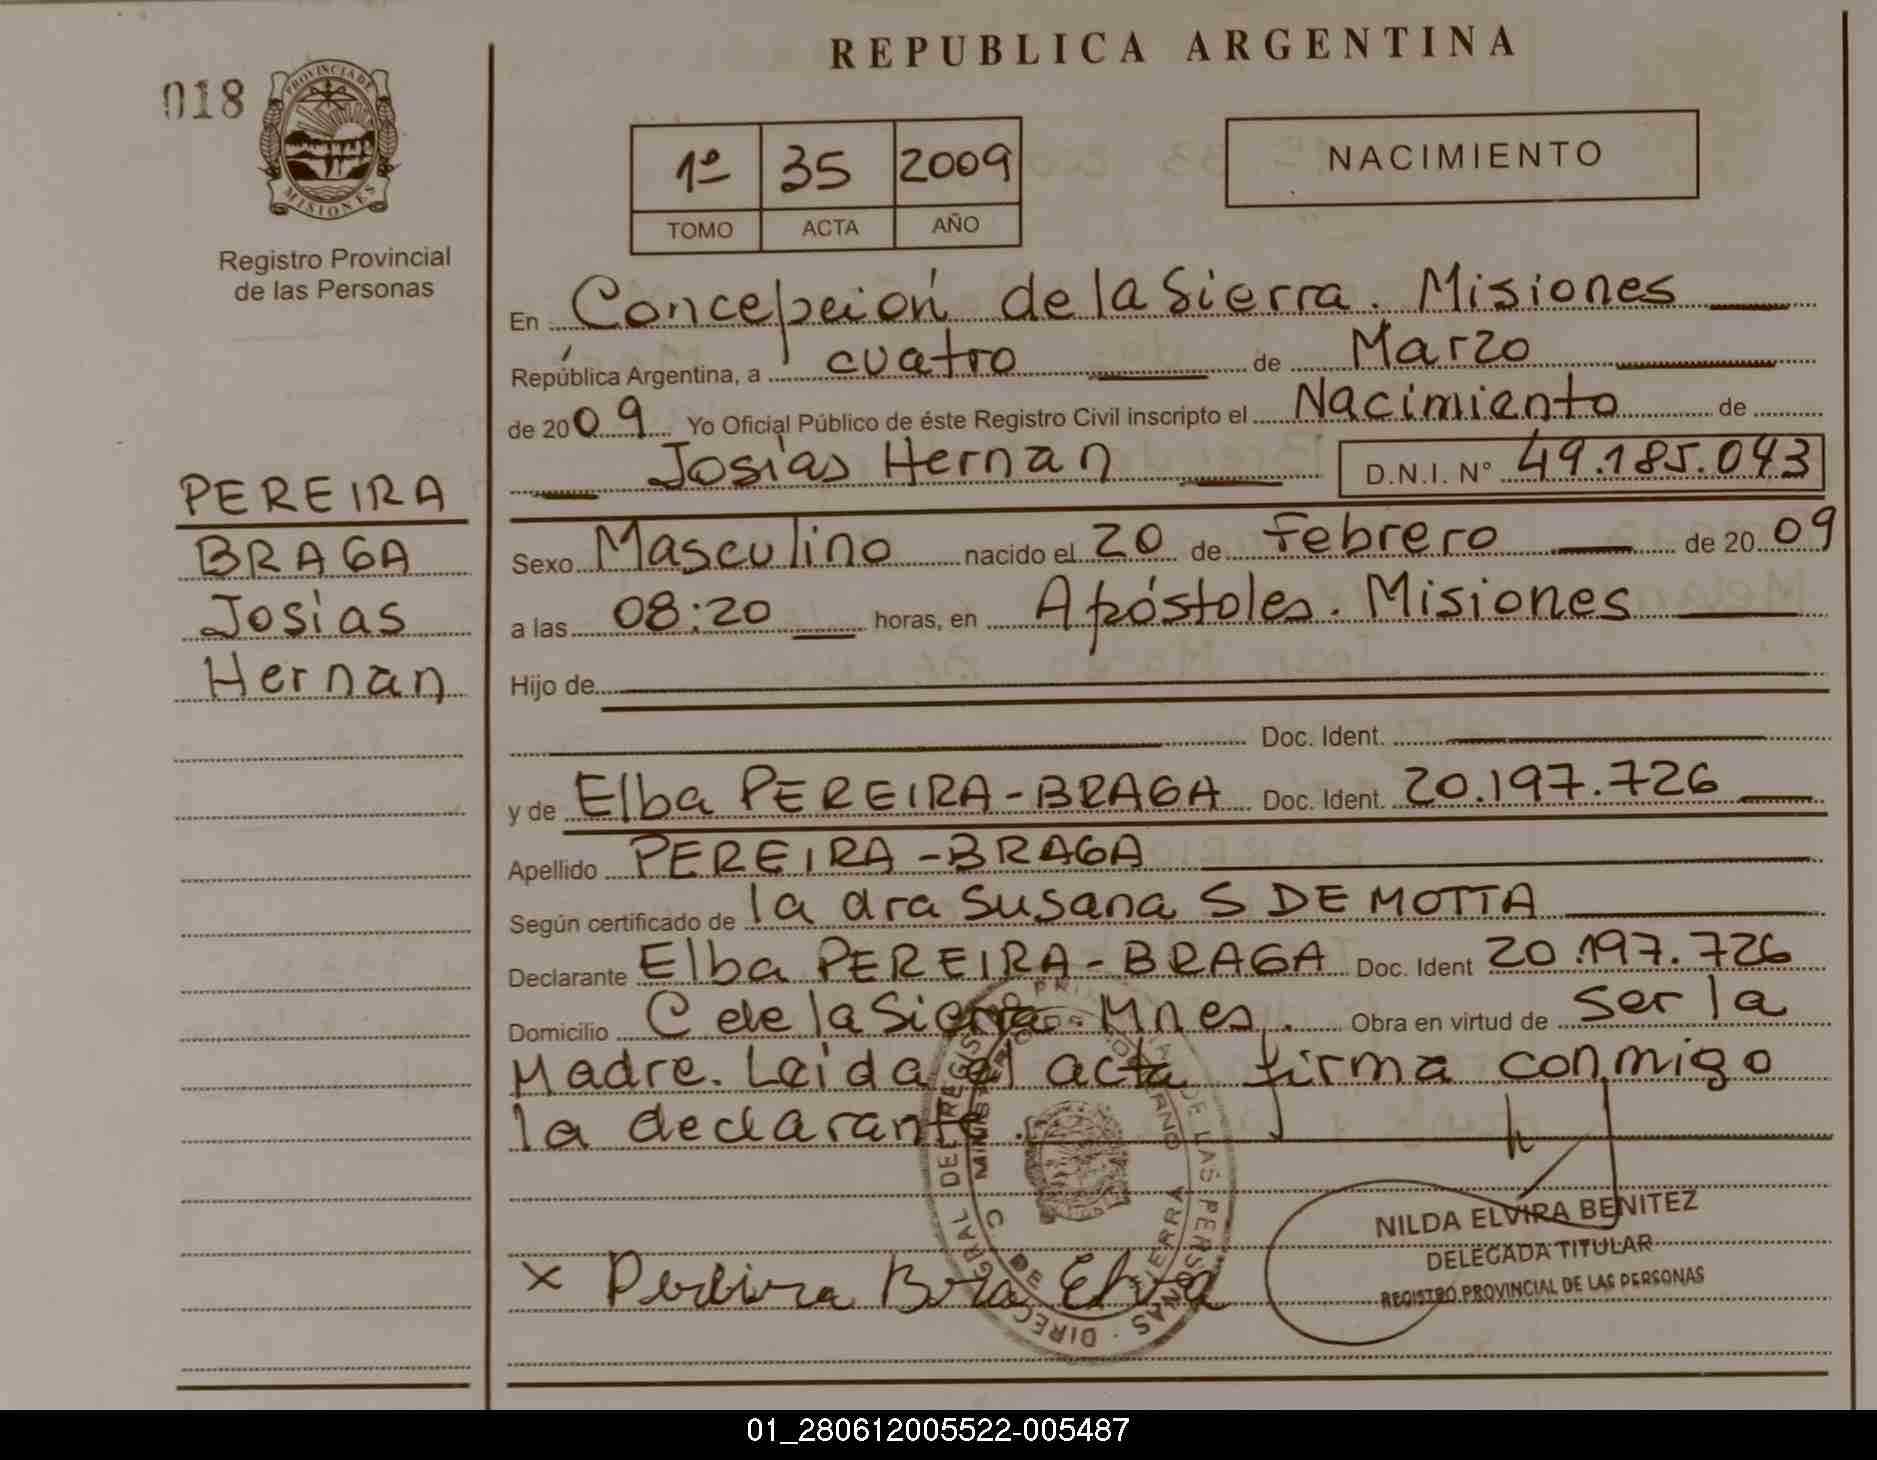 REPUBLICA ARGENTINA
018
PROVINCIA DE
MISIONES
Registro Provincial
de las Personas
1º 35 2009
TOMO ACTA AÑO
NACIMIENTO
PEREIRA
BRAGA
Josías
Hernan
En Concepción de la Sierra. Misiones
República Argentina, a cuatro de Marzo
de 2009 Yo Oficial Público de éste Registro Civil inscripto el Nacimiento de
Josías Hernan D.N.I. N° 49.185.043
Sexo Masculino nacido el 20 de Febrero de 2009
a las 08:20 horas, en Apóstoles. Misiones
Hijo de
Doc. Ident.
y de Elba PEREIRA-BRAGA Doc. Ident. 20.197.726
Apellido PEREIRA-BRAGA
Según certificado de la dra Susana S DE MOTTA
Declarante Elba PEREIRA-BRAGA Doc. Ident 20.197.726
Domicilio C de la Sierra Mnes. Obra en virtud de ser la
Madre. Leida el acta firma conmigo
la declarante.
NILDA ELVIRA BENITEZ
DELEGADA TITULAR
REGISTRO PROVINCIAL DE LAS PERSONAS
x Pereira
01_280612005522-005487